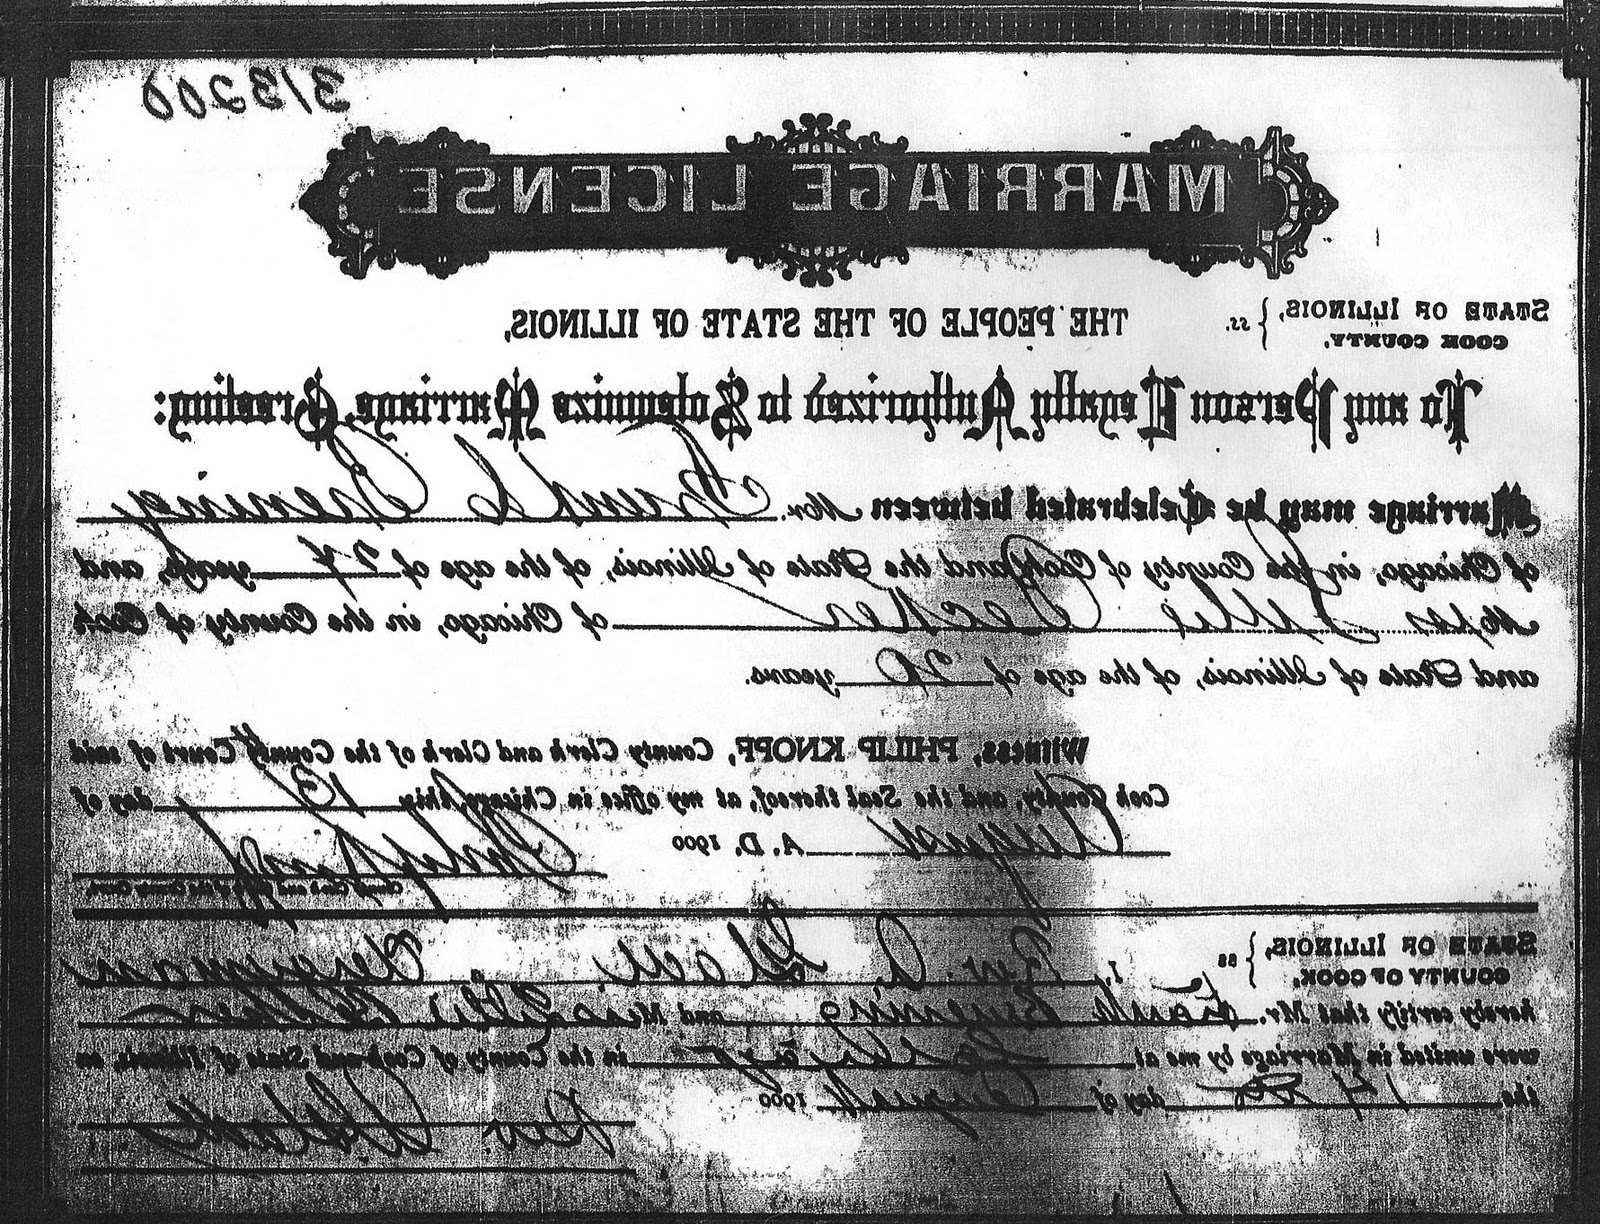 313200
MARRIAGE LICENSE
STATE OF ILLINOIS, } ss. THE PEOPLE OF THE STATE OF ILLINOIS,
COOK COUNTY.
To any Person Legally Authorized to Solemnize Marriage, Greeting:
Marriage may be Celebrated between Mr. Frank
of Chicago, in the County of Cook and the State of Illinois, of the age of 24 years, and
M Decker of Chicago, in the County of Cook
and State of Illinois, of the age of 20 years.
Witness, PHILIP KNOPF, County Clerk and Clerk of the County Court of said
Cook County, and the Seal thereof, at my office in Chicago, this 13 day of
August A. D. 1900 Philip Knopf
Clerk of the County Court.
STATE OF ILLINOIS, } ss I, Rev. A. Clergyman
COUNTY OF COOK,
hereby certify that Mr. Frank Bruening and Miss Lillie
were united in Marriage by me at in the County of Cook and State of Illinois, on
the 14 day of August 1900
Rev.